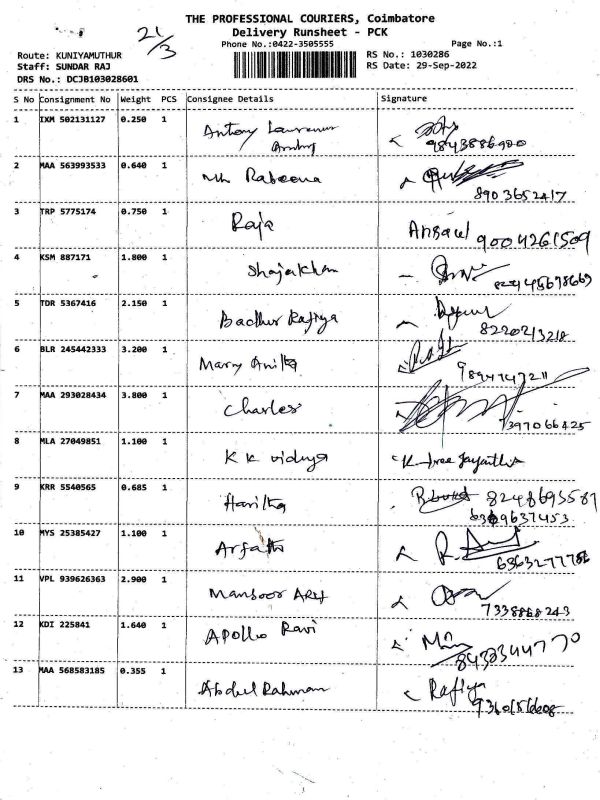 THE PROFESSIONAL COURIERS, Coimbatore
21/3
Delivery Runsheet - PCK
Phone No.:0422-3505555
Page No.:1
Route: KUNIYAMUTHUR
RS No.: 1030286
Staff: SUNDAR RAJ
RS Date: 29-Sep-2022
DRS No.: DCJB103028601
S No Consignment No Weight PCS Consignee Details Signature
1 IXM 502131127 0.250 1 Antony
9843886900
2 MAA 563993533 0.640 1 Rabeena
8903652417
3 TRP 5775174 0.750 1 Raja Ansael 9004261509
4 KSM 887171 1.800 1 Shajakhan
5 TDR 5367416 2.150 1 Badhur Rafiya
8220213218
6 BLR 245442333 3.200 1 Mary Anitta
9894747211
7 MAA 293028434 3.800 1 Charles
7397066425
8 MLA 27049851 1.100 1 K K vidhya K Sree Jayanthi
9 KRR 5540565 0.685 1 Haritha 8248693587
6369637453
10 MYS 25385427 1.100 1 Arfath
6363277786
11 VPL 939626363 2.900 1 Mansoor
7338888243
12 KDI 225841 1.640 1 Apollo Ravi
8438344770
13 MAA 568583185 0.355 1 Abdul Rahman Rafiya